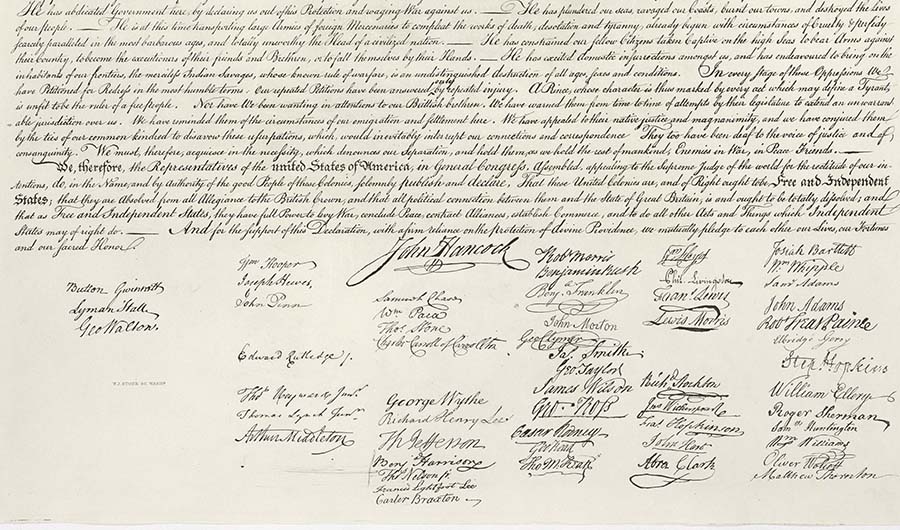 He has abdicated Government here, by declaring us out of his Protection and waging War against us. — He has plundered our seas, ravaged our Coasts, burnt our towns, and destroyed the lives
of our people. — He is at this time transporting large Armies of foreign Mercenaries to compleat the works of death, desolation and tyranny, already begun with circumstances of Cruelty & perfidy
scarcely paralleled in the most barbarous ages, and totally unworthy the Head of a civilized nation. — He has constrained our fellow Citizens taken Captive on the high Seas to bear Arms against
their Country, to become the executioners of their friends and Brethren, or to fall themselves by their Hands. — He has excited domestic insurrections amongst us, and has endeavoured to bring on the
inhabitants of our frontiers, the merciless Indian Savages, whose known rule of warfare, is an undistinguished destruction of all ages, sexes and conditions. In every stage of these Oppressions We
have Petitioned for Redress in the most humble terms: Our repeated Petitions have been answered only by repeated injury. A Prince, whose character is thus marked by every act which may define a Tyrant,
is unfit to be the ruler of a free people. Nor have We been wanting in attentions to our Brittish brethren. We have warned them from time to time of attempts by their legislature to extend an unwarrant-
able jurisdiction over us. We have reminded them of the circumstances of our emigration and settlement here. We have appealed to their native justice and magnanimity, and we have conjured them
by the ties of our common kindred to disavow these usurpations, which, would inevitably interrupt our connections and correspondence. They too have been deaf to the voice of justice and of
consanguinity. We must, therefore, acquiesce in the necessity, which denounces our Separation, and hold them, as we hold the rest of mankind, Enemies in War, in Peace Friends. —
We, therefore, the Representatives of the united States of America, in General Congress, Assembled, appealing to the Supreme Judge of the world for the rectitude of our in-
tentions, do, in the Name, and by authority of the good People of these Colonies, solemnly publish and declare, That these United Colonies are, and of Right ought to be Free and Independent
States; that they are Absolved from all Allegiance to the British Crown, and that all political connection between them and the State of Great Britain, is and ought to be totally dissolved; and
that as Free and Independent States, they have full Power to levy War, conclude Peace, contract Alliances, establish Commerce, and to do all other Acts and Things which Independent
States may of right do. — And for the support of this Declaration, with a firm reliance on the protection of divine Providence, we mutually pledge to each other our Lives, our Fortunes
and our sacred Honor.
Button Gwinnett
Lyman Hall
Geo Walton.
W.J. STONE SC. WASHn.
Wm Hooper
Joseph Hewes,
John Penn
Edward Rutledge /.
Thos Heyward Junr.
Thomas Lynch Junr.
Arthur Middleton
John Hancock
Samuel Chase
Wm Paca
Thos Stone
Charles Carroll of Carrollton
George Wythe
Richard Henry Lee
Th Jefferson
Benj Harrison
Thos Nelson jr.
Francis Lightfoot Lee
Carter Braxton
Robt Morris
Benjamin Rush
Benja Franklin
John Morton
Geo Clymer
Jas. Smith
Geo. Taylor
James Wilson
Geo. Ross
Caesar Rodney
Geo Read
Tho M:Kean
Wm Floyd
Phil. Livingston
Frans. Lewis
Lewis Morris
Richd. Stockton
Jno Witherspoon
Fras. Hopkinson
John Hart
Abra Clark
Josiah Bartlett
Wm. Whipple
Saml Adams
John Adams
Robt Treat Paine
Elbridge Gerry
Step. Hopkins
William Ellery
Roger Sherman
Saml Huntington
Wm. Williams
Oliver Wolcott
Matthew Thornton